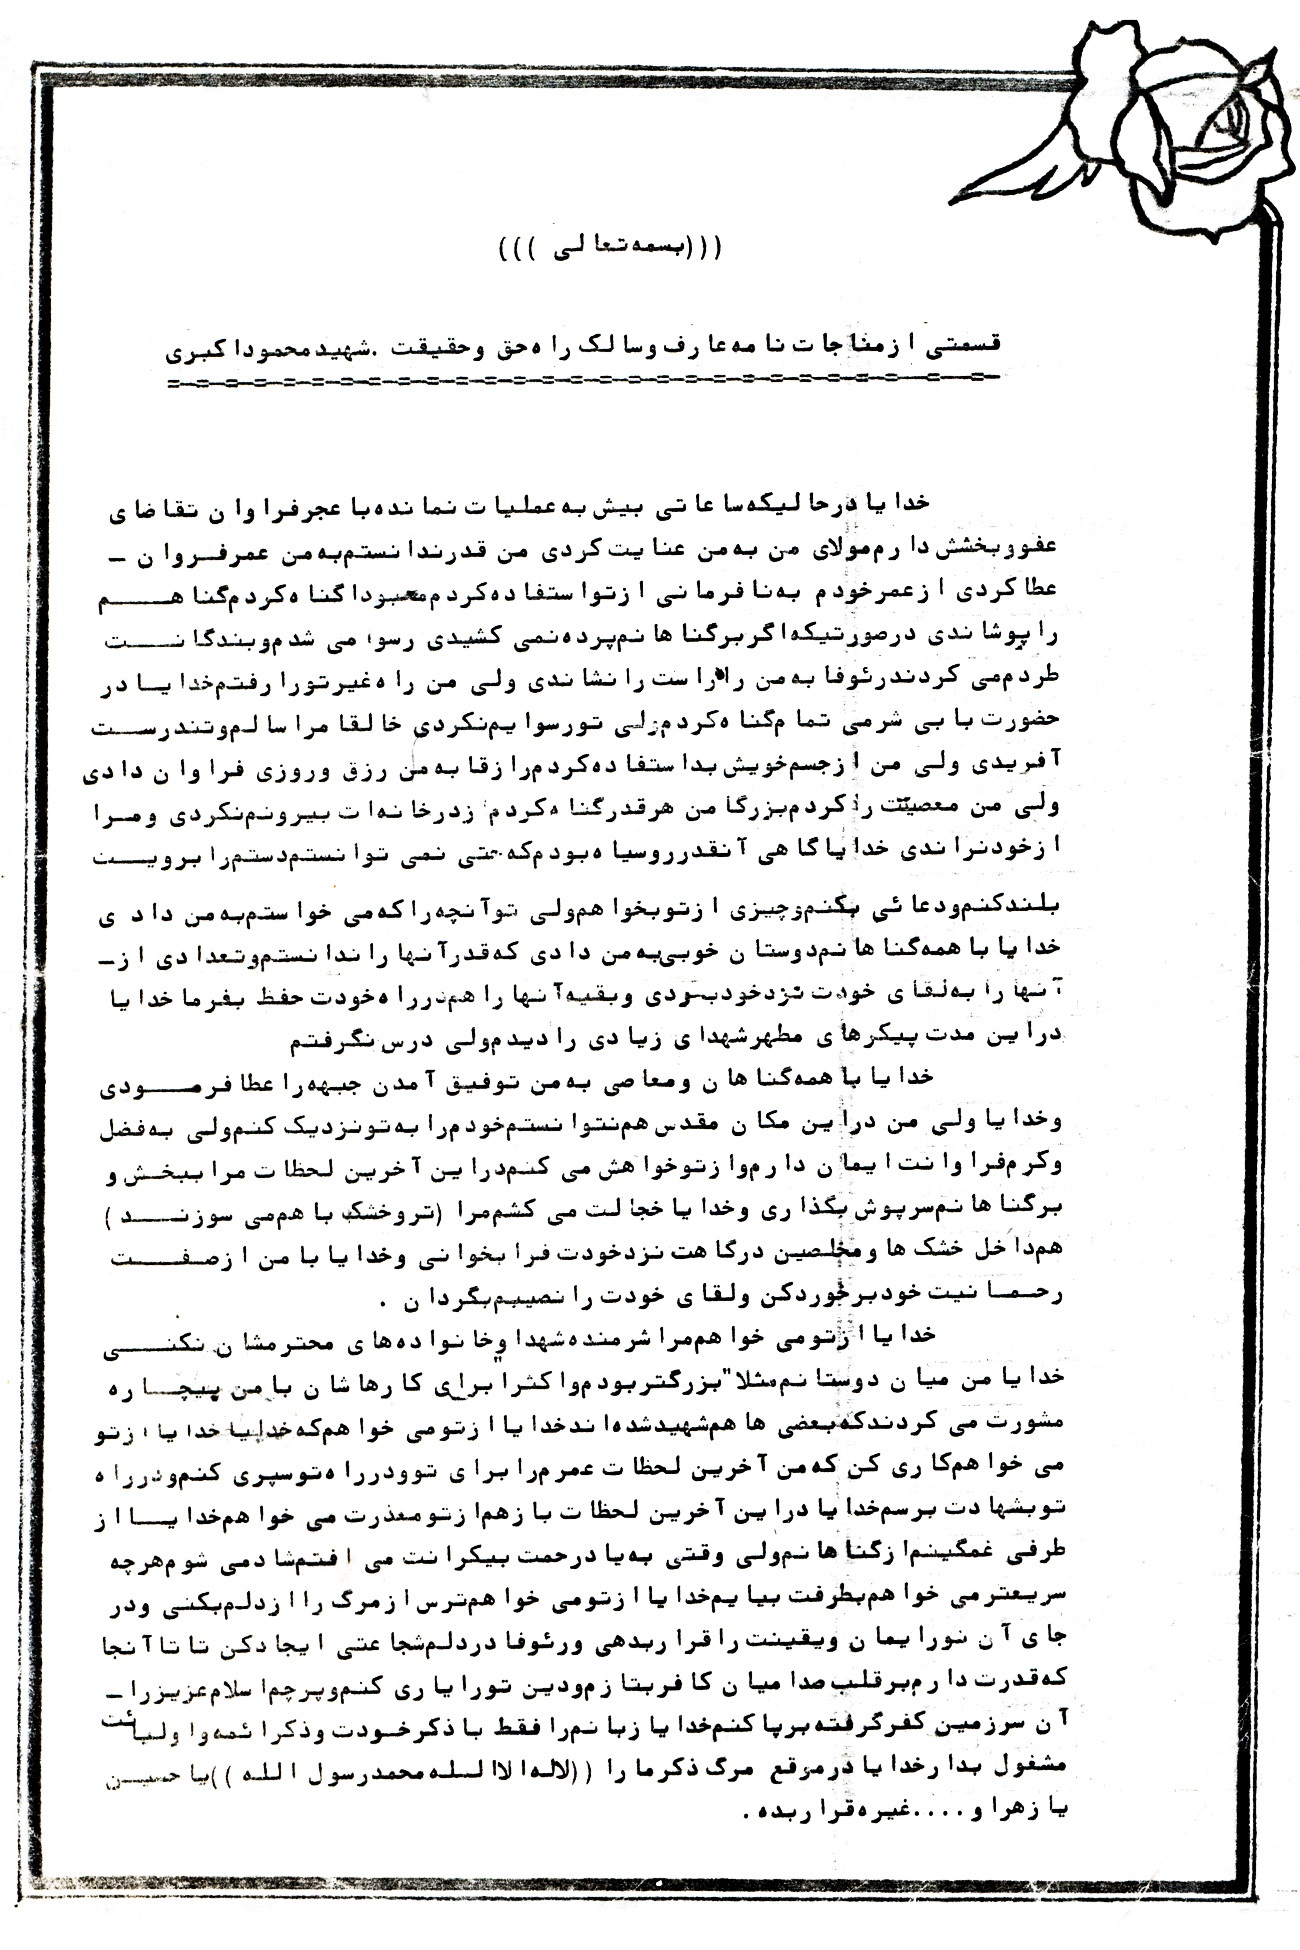 (((بسمه تعالی )))
قسمتی از مناجات نامه عارف و سالک راه حق و حقیقت .شهید محمود اکبری
خدایا در حالیکه ساعاتی بیش به عملیات نمانده با عجر فراوان تقاضای
عفو و بخشش دارم مولای من به من عنایت کردی من قدر ندانستم به من عمر فـروان ـ
عطا کردی از عمر خودم به نافرمانی از تو استفاده کردم معبودا گناه کردم گناهـــم
را پوشاندی در صورتیکه اگر بر گناهانم پرده نمی کشیدی رسوا می شدم و بندگانـــت
طردم می کردند رئوفا به من راه راست را نشاندی ولی من راه غیر تو را رفتم خدایــا در
حضورت با بی شرمی تمام گناه کردم ولی تو رسوایم نکردی خالقا مرا سالم و تندرســت
آفریدی ولی من از جسم خویش بد استفاده کردم رازقا به من رزق و روزی فراوان دادی
ولی من معصیتت را کردم بزرگا من هر قدر گناه کردم از در خانه ات بیرونم نکردی و مـرا
از خود نراندی خدایا گاهی آنقدر رو سیاه بودم که حتی نمی توانستم دستم را برویـت
بلند کنم و دعائی بکنم و چیزی از تو بخواهم ولی تو آنچه را که می خواستم به من دادی
خدایا با همه گناهانم دوستان خوبی به من دادی که قدر آنها را ندانستم و تعدادی از ـ
آنها را به لقای خودت نزد خود بـردی و بقیه آنها را هم در راه خودت حفظ بفرما خدایا
در این مدت پیکرهای مطهر شهدای زیادی را دیدم ولی درس نگرفتم
خدایا با همه گناهان و معاصی به من توفیق آمدن جبهه را عطا فرمــودی
و خدایا ولی من در این مکان مقدس هم نتوانستم خودم را به تو نزدیک کنم ولی به فضل
و کرم فراوانت ایمان دارم و از تو خواهش می کنم در این آخرین لحظات مرا ببخـش و
بر گناهانم سرپوش بگذاری و خدایا خجالت می کشم مرا (تر و خشک با هم می سوزنــد )
هم داخل خشک ها و مخلصین درگاهت نزد خودت فرا بخوانی و خدایا با من از صفـــت
رحمـانیت خود برخورد کن و لقای خودت را نصیبم بگردان .
خدایا از تو می خواهم مرا شرمنده شهدا و خانواده های محترمشان نکنــی
خدایا من میان دوستانم مثلا" بزرگتر بودم و اکثرا" برای کارهاشان با من بیچــاره
مشورت می کردند که بعضی ها هم شهید شده اند خدایا از تو می خواهم که خدایا خدایا از تو
می خواهم کاری کن که من آخرین لحظات عمرم را برای تو و در راه تو سپری کنم و در راه
تو بشهادت برسم خدایا در این آخرین لحظات باز هم از تو معذرت می خواهم خدایــا از
طرفی غمگینم از گناهانم ولی وقتی به یاد رحمت بیکرانت می افتم شاد می شوم هر چه
سریعتر می خواهم بطرفت بیایم خدایا از تو می خواهم ترس از مرگ را از دلم بکنی و در
جای آن نور ایمان و یقینت را قرار بدهی و رئوفا در دلم شجاعتی ایجاد کن تا تا آنجا
که قدرت دارم بر قلب صدامیان کافر بتازم و دین تو را یاری کنم و پرچم اسلام عزیز را ـ
آن سرزمین کفر گرفته برپا کنم خدایا زبانم را فقط با ذکر خـودت و ذکر ائمه و اولیائت
مشغول بدار خدایا در موقع مرگ ذکر ما را ((لااله الا الـلـه محمد رسول الله ))یا حسیــن
یا زهرا و .... غیره قرار بده .